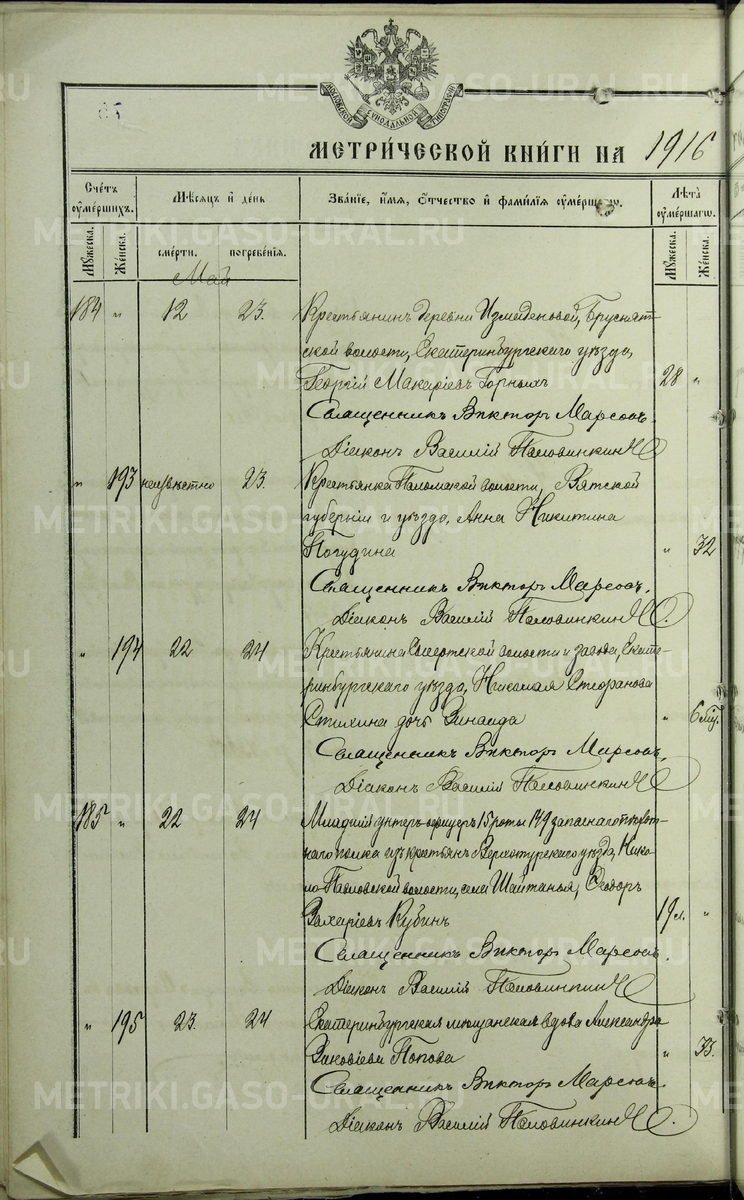 МОСКОВСКОЙ СѴНОДАЛЬНОЙ ТИПОГРАФІИ
МЕТРИ́ЧЕСКОЙ КНИ́ГИ НА 1916
Сче́тъ ᲂумершихъ.
Мѣсяцъ и день
Зва́ніе, и́мя, ѻ҆́тчество и фами́лія ᲂуме́ршагѡ.
Лѣ́та ᲂуме́ршагѡ.
Мужеска. Женска. сме́рти. погребе́нія. Мужеска. Женска.
Май
184 " 12 23. Крестьянинъ деревни Измоденовой, Бруснят-
ской волости, Екатеринбургскаго уѣзда,
Георгій Макаріевъ Горныхъ 28 "
Священникъ Викторъ Марсовъ.
Діаконъ Василій Половинкинъ
" 193 неизвѣстно 23. Крестьянка волости, Вятской
губерніи и уѣзда, Анна Никитина
Погудина " 32
Священникъ Викторъ Марсовъ.
Діаконъ Василій Половинкинъ.
" 194 22 24 Крестьянина волости и завода, Екате-
ринбургскаго уѣзда, Николая Стефанова
дочь Зинаида " 6 мѣс.
Священникъ Викторъ Марсовъ.
Діаконъ Василій Половинкинъ
185 " 22 24 Младшій унтеръ-офицеръ 15 роты 149 запаснаго пѣхот-
наго полка изъ крестьянъ Верхотурскаго уѣзда, Нико-
ло-Павловской волости, села Шайтанки, Ѳеодоръ
Захаріевъ Кубинъ 19 л. "
Священникъ Викторъ Марсовъ.
Діаконъ Василій Половинкинъ
" 195 23. 24 Екатеринбургская мѣщанская вдова Александра
Попова " 33.
Священникъ Викторъ Марсовъ
Діаконъ Василій Половинкинъ.
METRIKI.GASO-URAL.RU